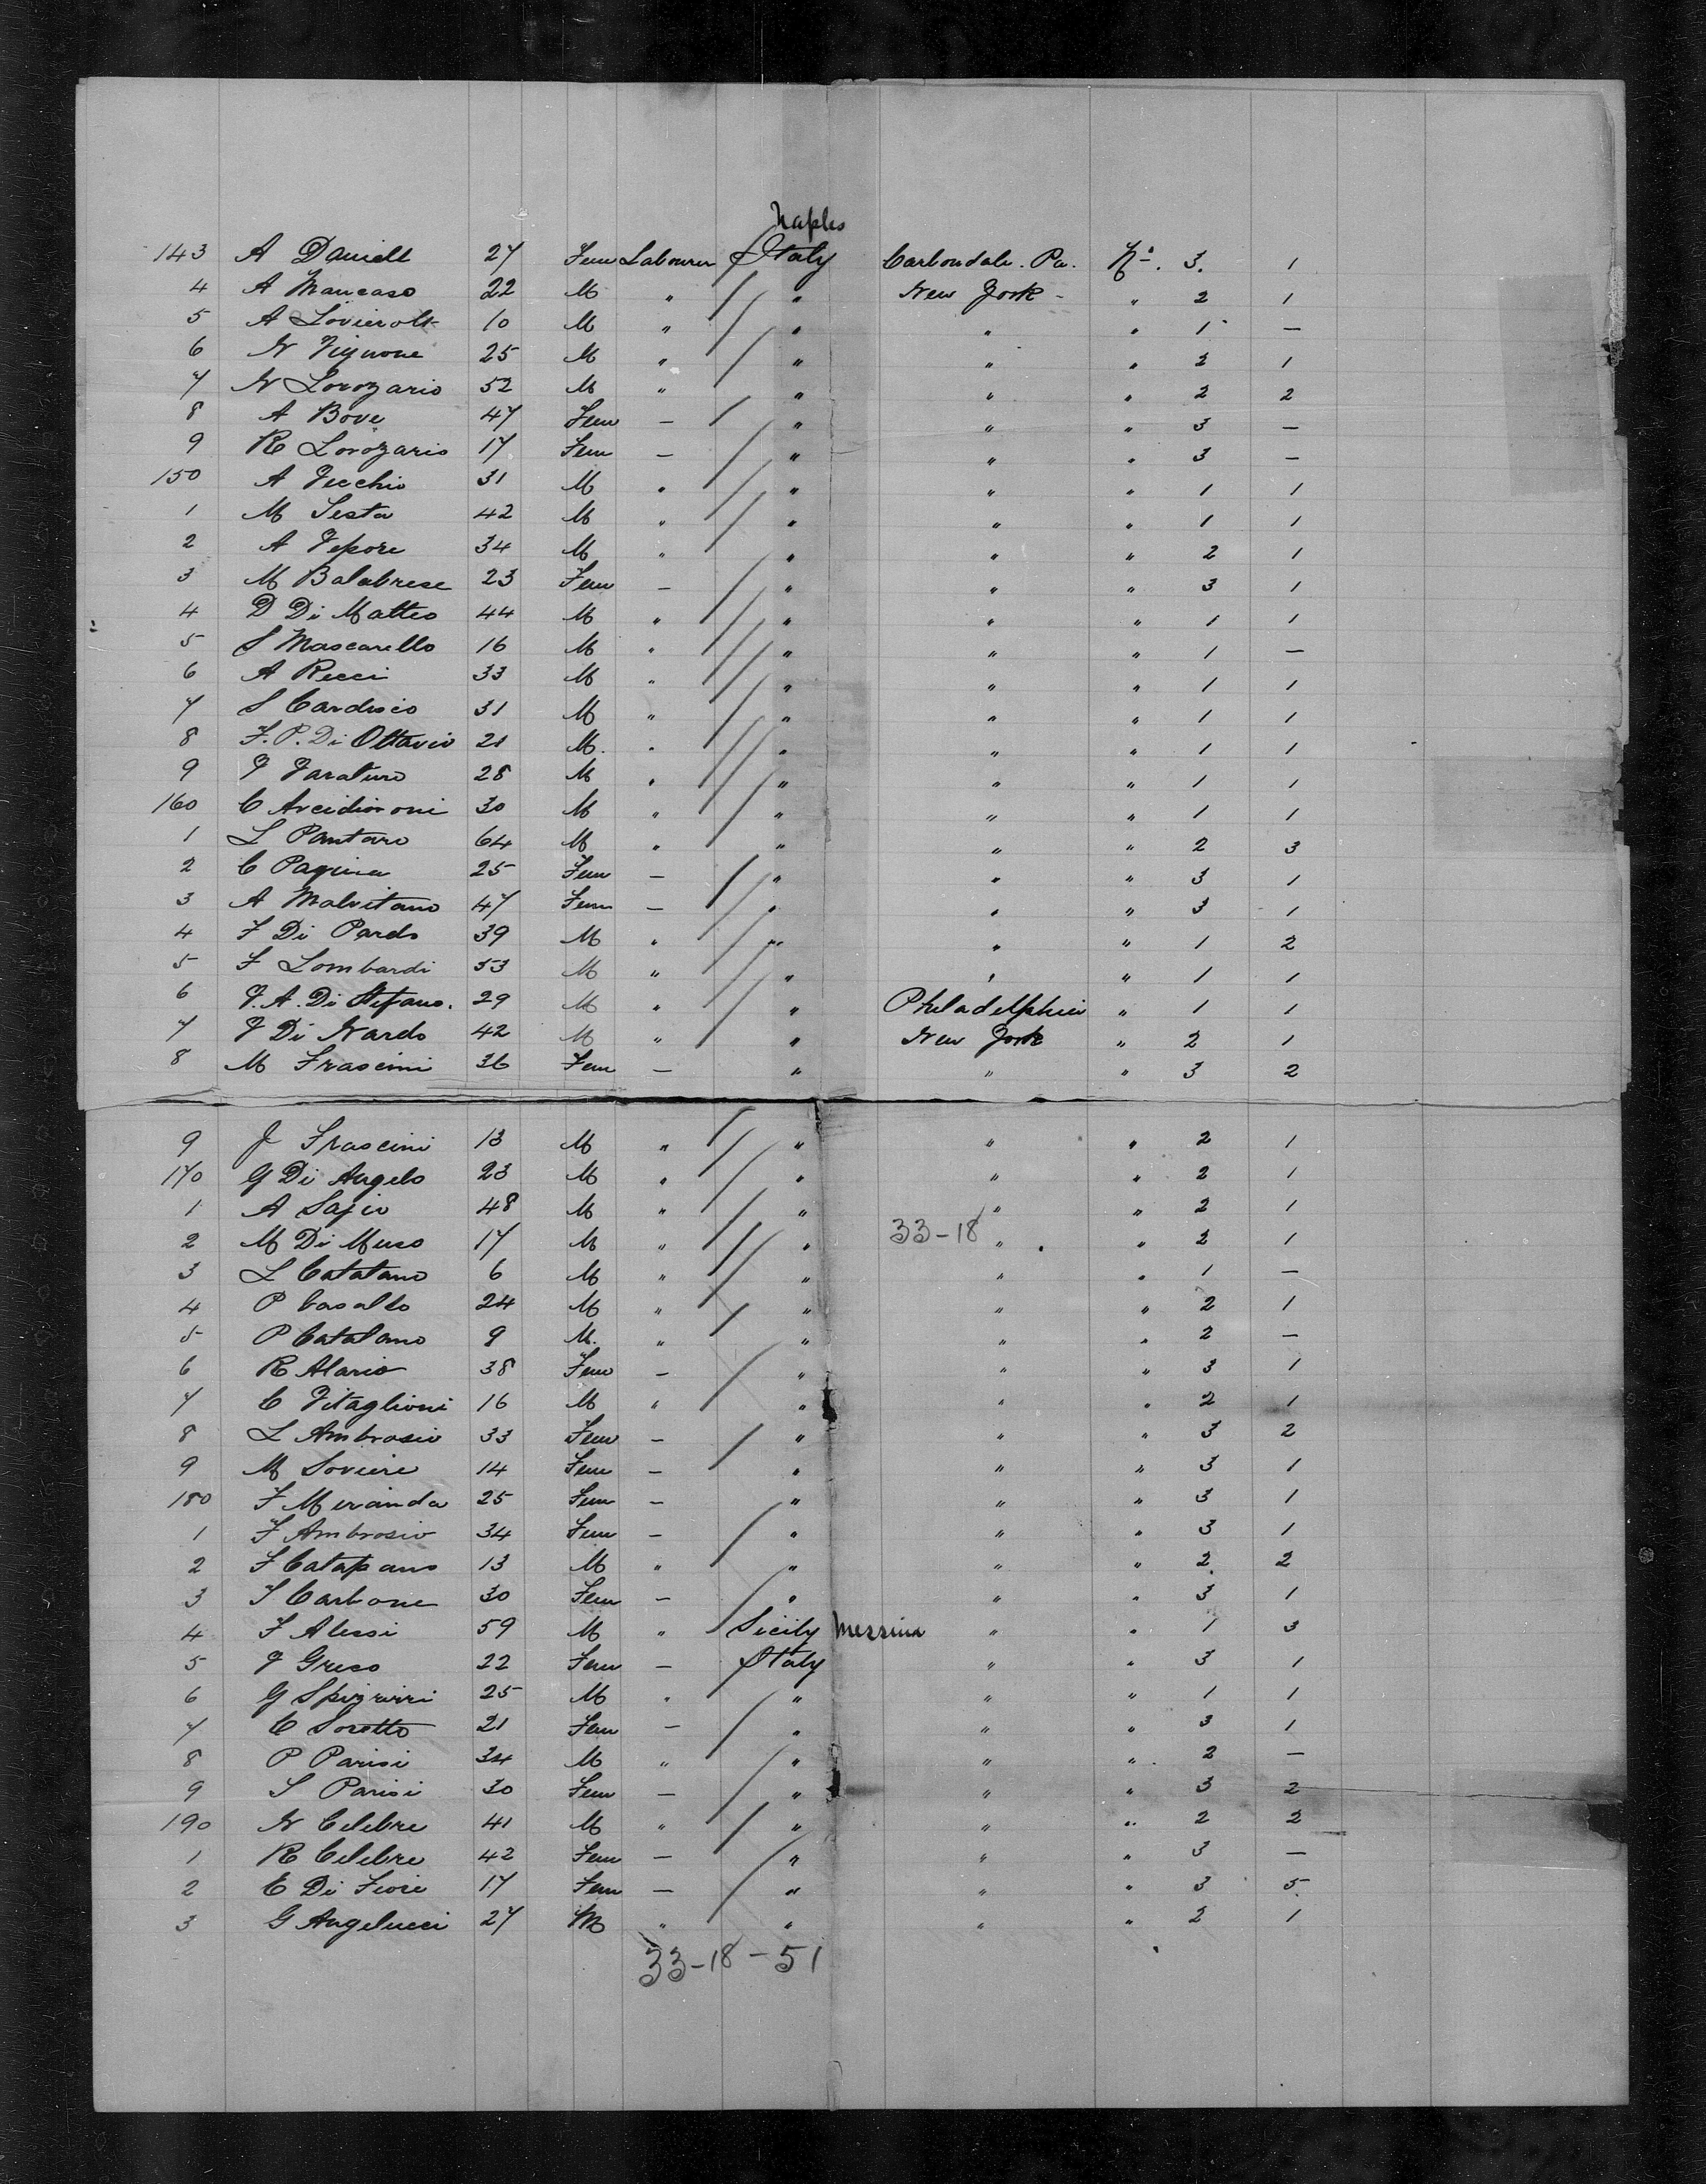 Naples
143 A Daniell 27 Fem Labourer Italy Carbondale. Pa. No. 3. 1
4 A Mancaso 22 M " " New York - " 2 1
5 A 10 M " " " " 1 —
6 N Vignone 25 M " " " " 2 1
7 N Lorozario 52 M " " " " 2 2
8 A Bove 47 Fem — " " " 3 —
9 R Lorozario 17 Fem — " " " 3 —
150 A Vecchio 31 M " " " " 1 1
1 M Testa 42 M " " " " 1 1
2 A Pepore 34 M " " " " 2 1
3 M Balabrese 23 Fem — " " " 3 1
4 D Di Matteo 44 M " " " " 1 1
5 S Mascarello 16 M " " " " 1 —
6 A Ricci 33 M " " " " 1 1
7 S Cardisco 31 M " " " " 1 1
8 F. P. Di Ottavio 21 M. " " " " 1 1
9 28 M " " " " 1 1
160 C 30 M " " " " 1 1
1 L Pantaro 64 M " " " " 2 3
2 C Pagina 25 Fem — " " " 3 1
3 A Malvitano 47 Fem — " " " 3 1
4 F Di Pardo 39 M " " " " 1 2
5 F Lombardi 53 M " " " " 1 1
6 A. Di Stefano. 29 M " " Philadelphia " 1 1
7 Di Nardo 42 M " " New York " 2 1
8 M Frascini 36 Fem — " " " 3 2
9 J Frascini 13 M " " " " 2 1
170 G Di Angelo 23 M " " " " 2 1
1 A Sajio 48 M " " " " 2 1
2 M Di Muso 17 M " " 33-18 " " 2 1
3 L Catalano 6 M " " " " 1 —
4 P Casaldo 24 M " " " " 2 1
5 P Catalano 9 M. " " " " 2 —
6 R Alario 38 Fem — " " " 3 1
7 C Vitaglioni 16 M " " " " 2 1
8 L Ambrosio 33 Fem — " " " 3 2
9 M Soviere 14 Fem — " " " 3 1
180 F Miranda 25 Fem — " " " 3 1
1 F Ambrosio 34 Fem — " " " 3 1
2 F Catapano 13 M " " " " 2 2
3 S Carbone 30 Fem — " " " 3 1
4 F Alessi 59 M " Sicily Messina " " 1 3
5 Greco 22 Fem — Italy " " 3 1
6 G Spizzirri 25 M " " " " 1 1
7 C Soretto 21 Fem — " " " 3 1
8 P Parisi 34 M " " " " 2 —
9 S Parisi 30 Fem — " " " 3 2
190 N Celebre 41 M " " " " 2 2
1 R Celebre 42 Fem — " " " 3 —
2 E Di Fiore 17 Fem — " " " 3 5
3 G Angelucci 27 M " " " " 2 1
33-18-51